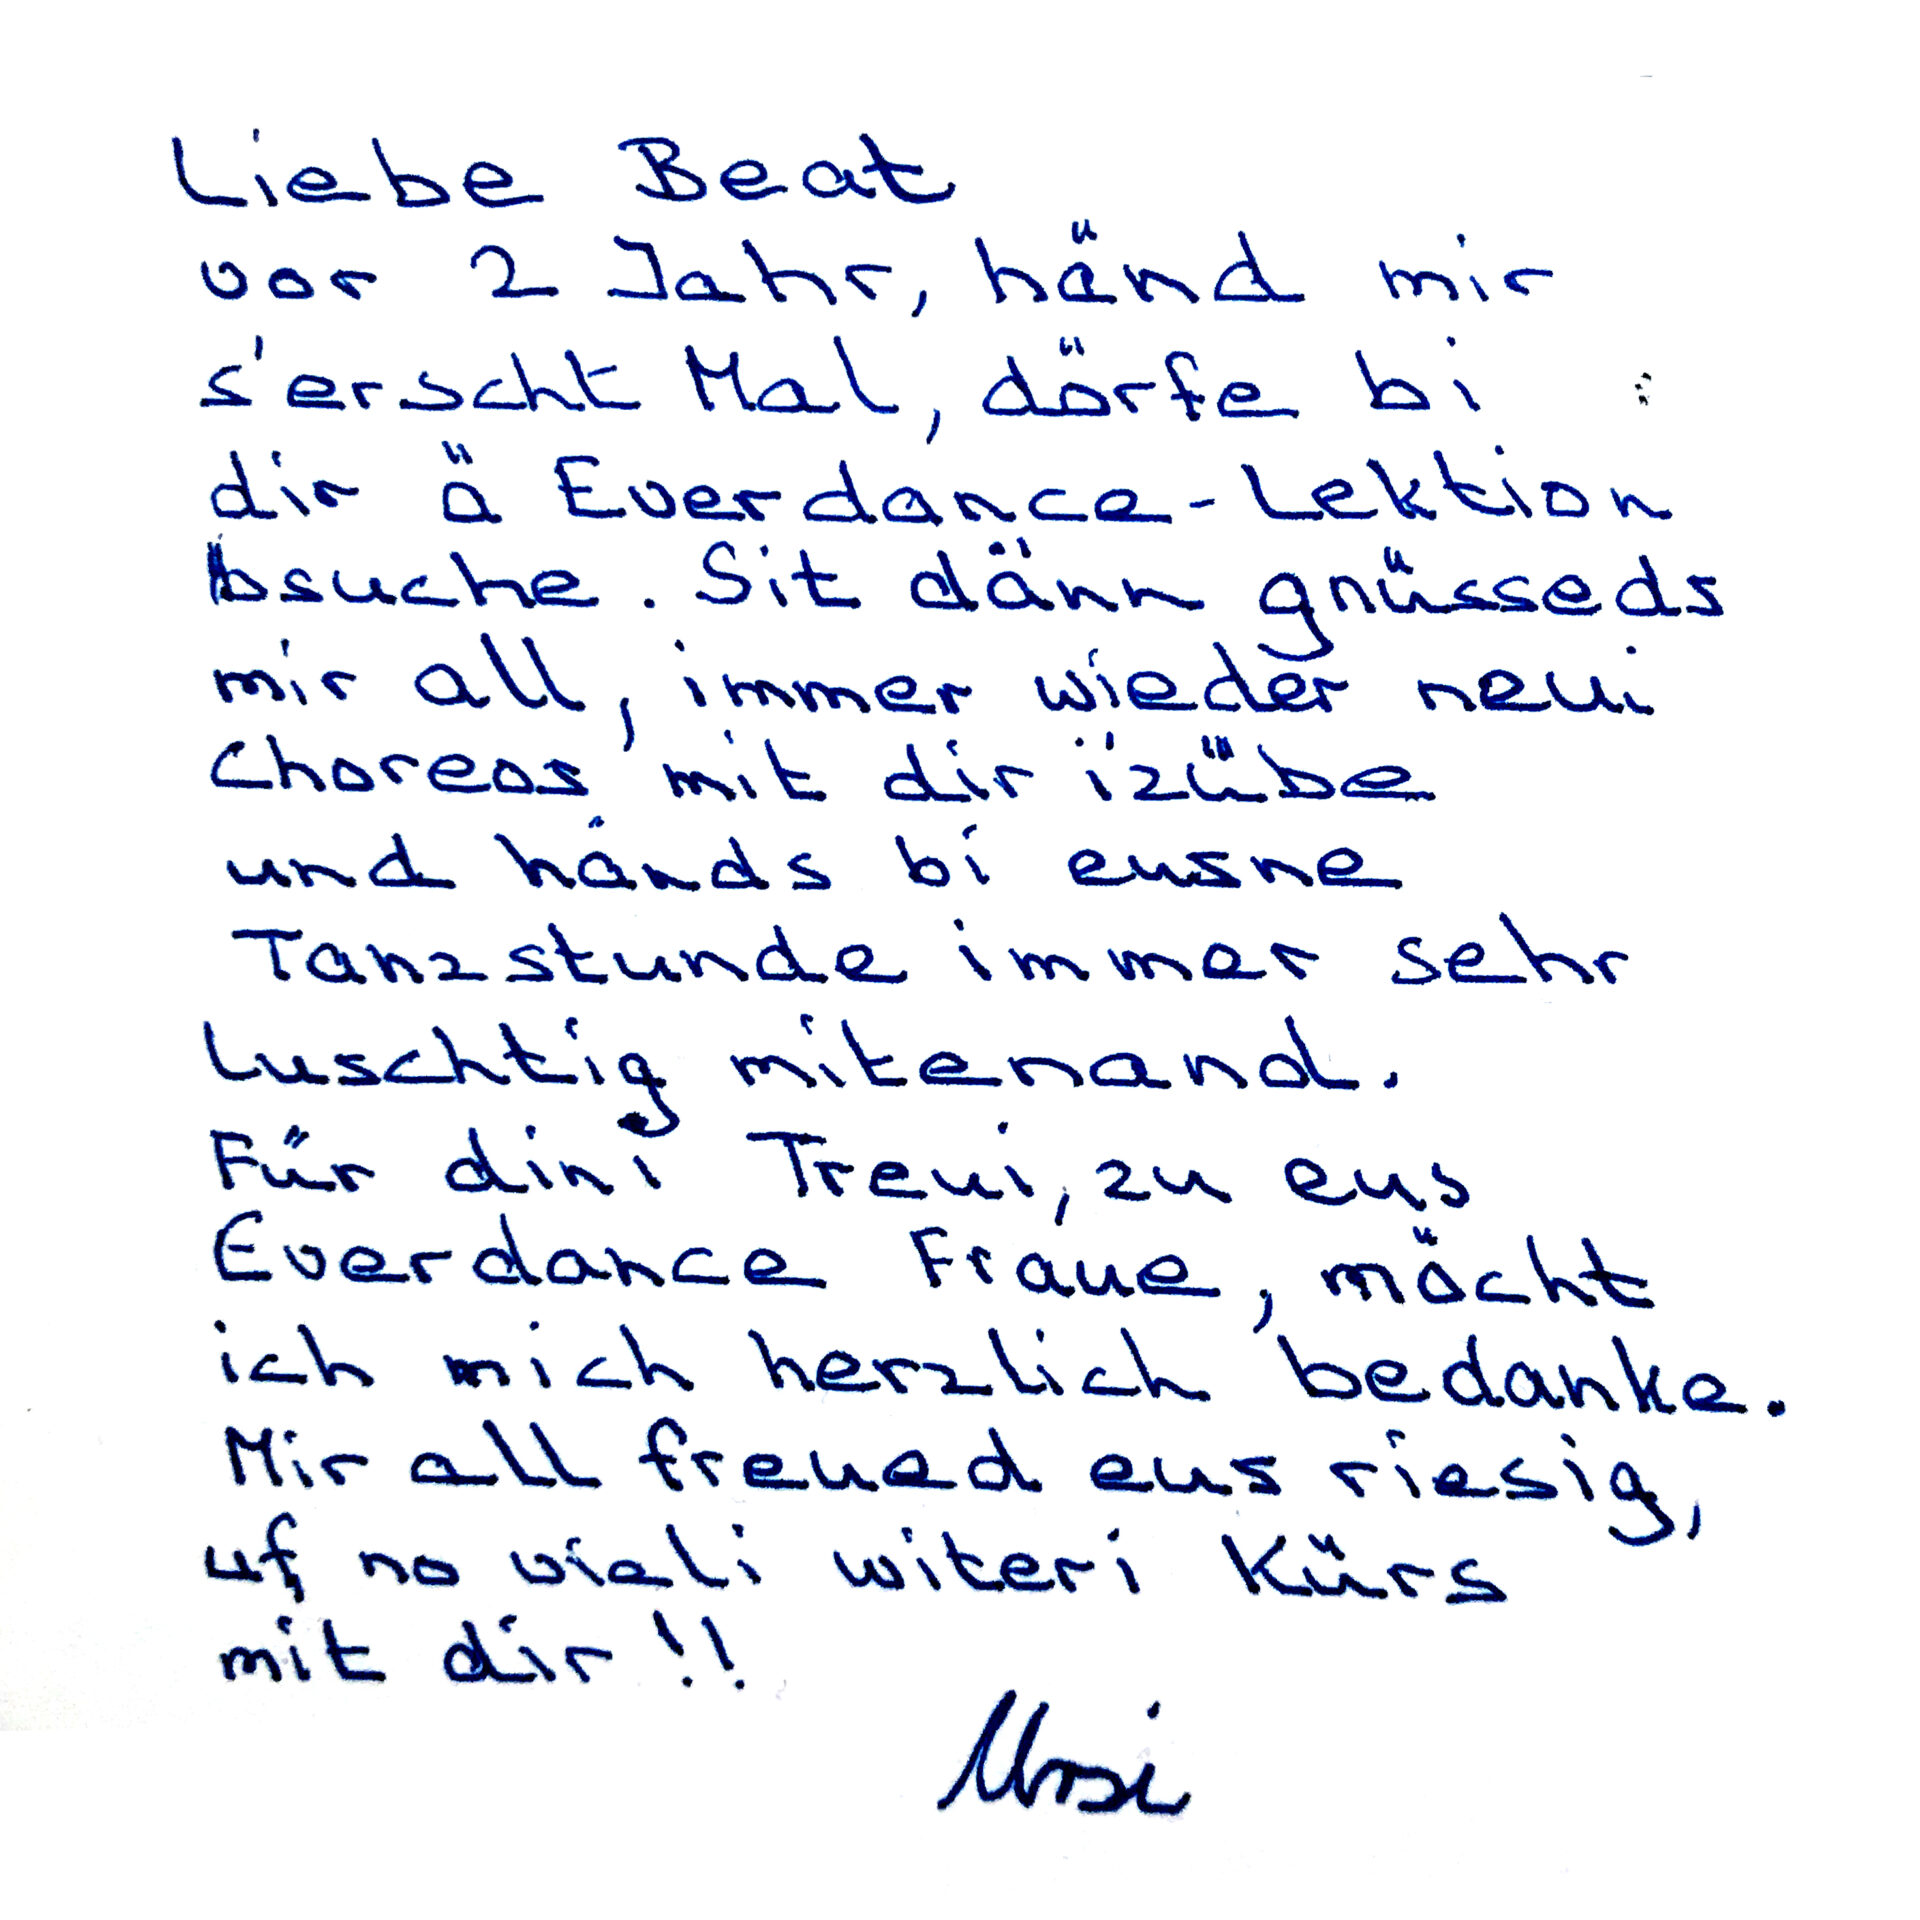 Liebe Beat
vor 2 Jahr, händ mir
s'erscht Mal, dörfe bi
dir ä Everdance-Lektion
bsuche. Sit dänn gnüsseds
mir all, immer wieder neui
Choreos mit dir izübe
und händs bi eusne
Tanzstunde immer sehr
luschtig mitenand.
Für dini Treui, zu eus
Everdance Fraue, möcht
ich mich herzlich bedanke.
Mir all freued eus riesig,
uf no vieli witeri Kürs
mit dir!!
Ursi